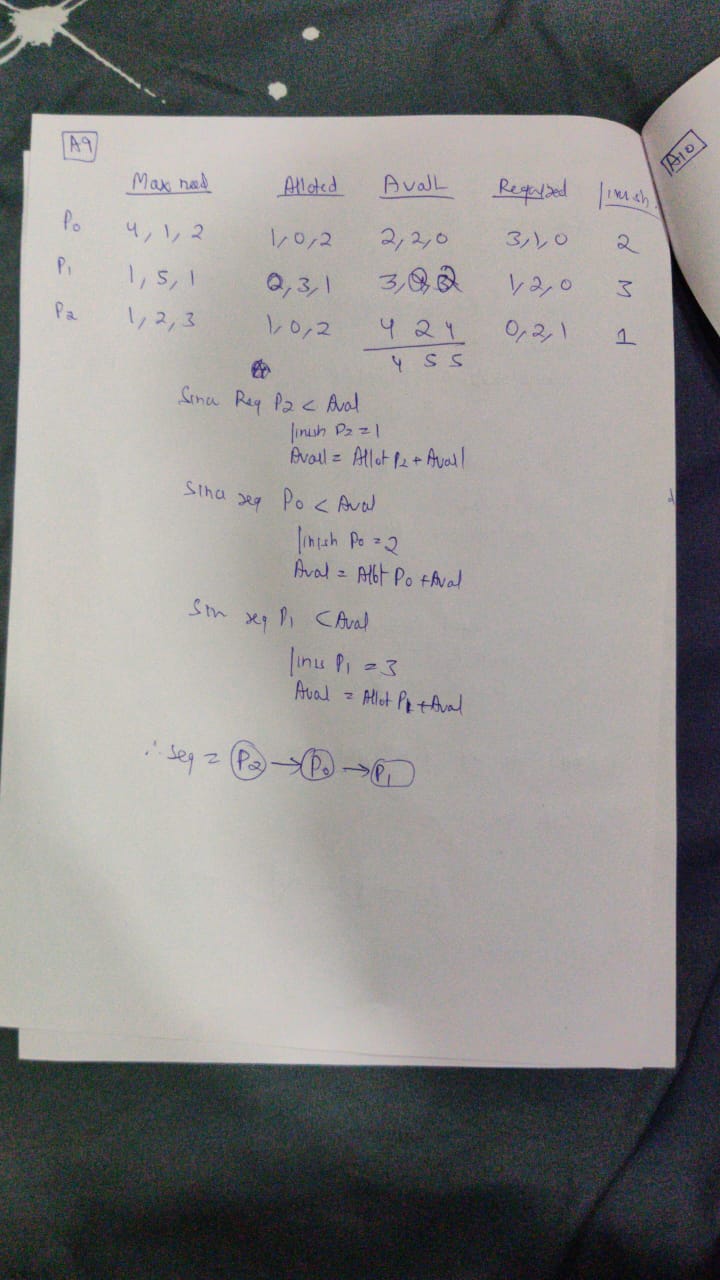 A9
A10
Max need Alloted Avail Required Finish
P0 4, 1, 2 1, 0, 2 2, 2, 0 3, 1, 0 2
P1 1, 5, 1 0, 3, 1 3, 1, 2, 0 3
P2 1, 2, 3 1, 0, 2 4 2 4 0, 2, 1 1
4 5 5
Sina Req P2 < Aval
Finish P2 = 1
Avail = Allot P2 + Avail
Sina req P0 < Aval
Finish P0 = 2
Aval = Allot P0 + Aval
Sin req P1 < Aval
Finis P1 = 3
Aval = Allot P1 + Aval
∴ Seq = P2 → P0 → P1